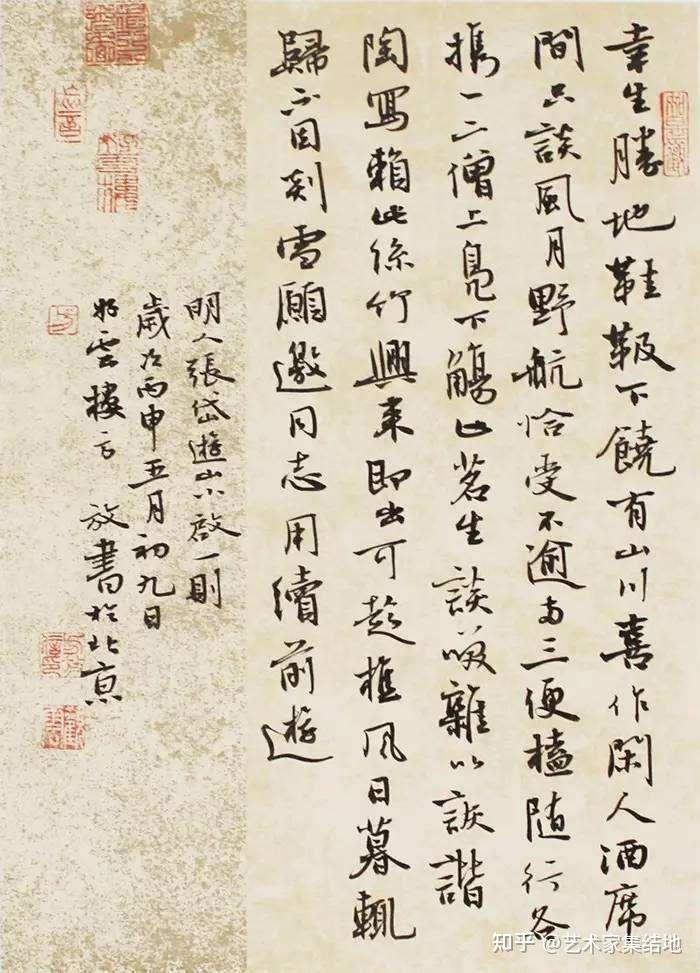 幸生勝地鞋靸下饒有山川喜作閑人酒席
間只談風月野航恰受不逾兩三便榼隨行各
攜一二僧上鳧下觴止茗生談啜雜以詼諧
陶寫賴此絲竹興來即出可趁樵風日暮輒
歸不因剡雪願邀同志用續前遊
明人張岱遊山小啟一則
歲次丙申五月初九日
雲樓方放書於北京
知乎 @艺术家集结地